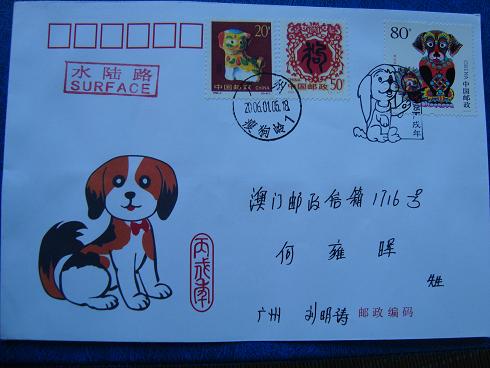 20分
中国邮政 CHINA
狗
中国邮政 50分
80分
CHINA
中国邮政
水陆路
SURFACE
2006.01.05.18
搜狗岭1
戌年
澳门邮政信箱1716号
何雍晖
先生
丙戌年
广州 刘明涛 邮政编码